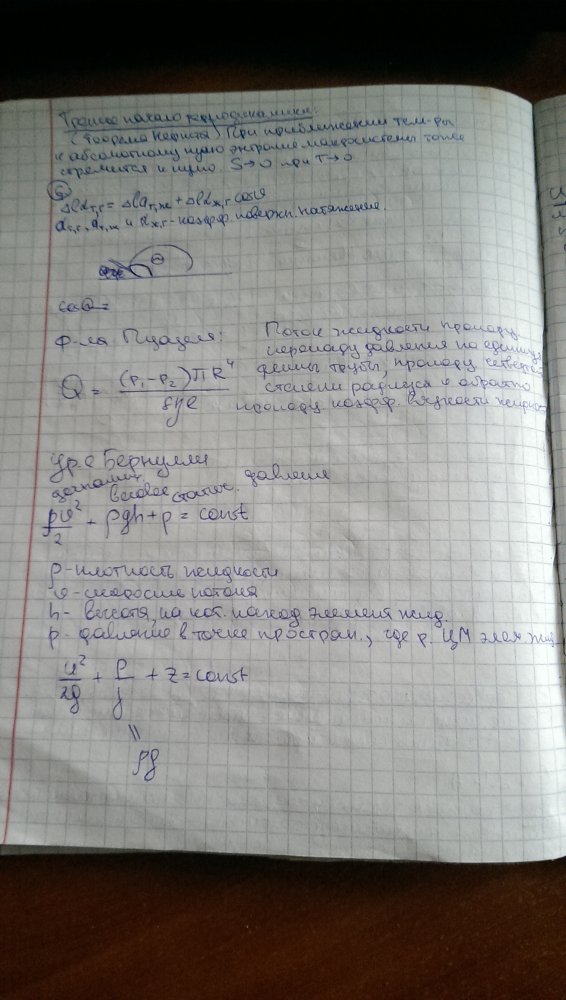 Третье начало термодинамики:
(теорема Нернста) При приближении тем-ры
к абсолютному нулю энтропия макросистемы тоже
стремится к нулю. S→0 при T→0
Δlαт,г = Δlαт,ж + Δlαж,г cosθ
αт,г, αт,ж и αж,г - коэфф. поверхн. натяжения.
cosθ =
Ф-ла Пуазеля:
Поток жидкости пропорц.
перепаду давления на единицу
длины трубы, пропорц. четвертой
степени радиуса и обратно
пропорц. коэфф. вязкости жидкости
Q = (p₁-p₂)πR⁴ / 8ηl
Ур. е Бернулли
весовое статич. давления
ρv²/2 + ρgh + p = const
ρ - плотность жидкости
v - скорость потока
h - высота, на кот. наход. элемент жид.
p - давление в точке простран., где р. ЦМ элем. жид.
u²/2g + P/γ + z = const
||
ρg